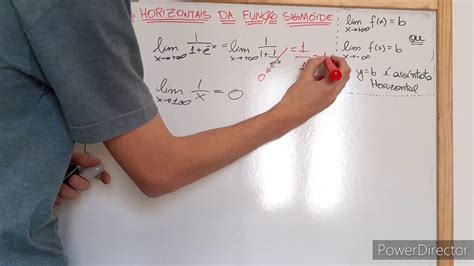 S HORIZONTAIS DA FUNÇÃO SIGMÓIDE
lim 1/(1+e^-x) = lim 1/(1+1/ = 1/
x→+∞ x→+∞
0
lim 1/x = 0
x→±∞
lim f(x) = b
x→+∞
ou
lim f(x) = b
x→-∞
y=b é assíntota
Horizontal
PowerDirector